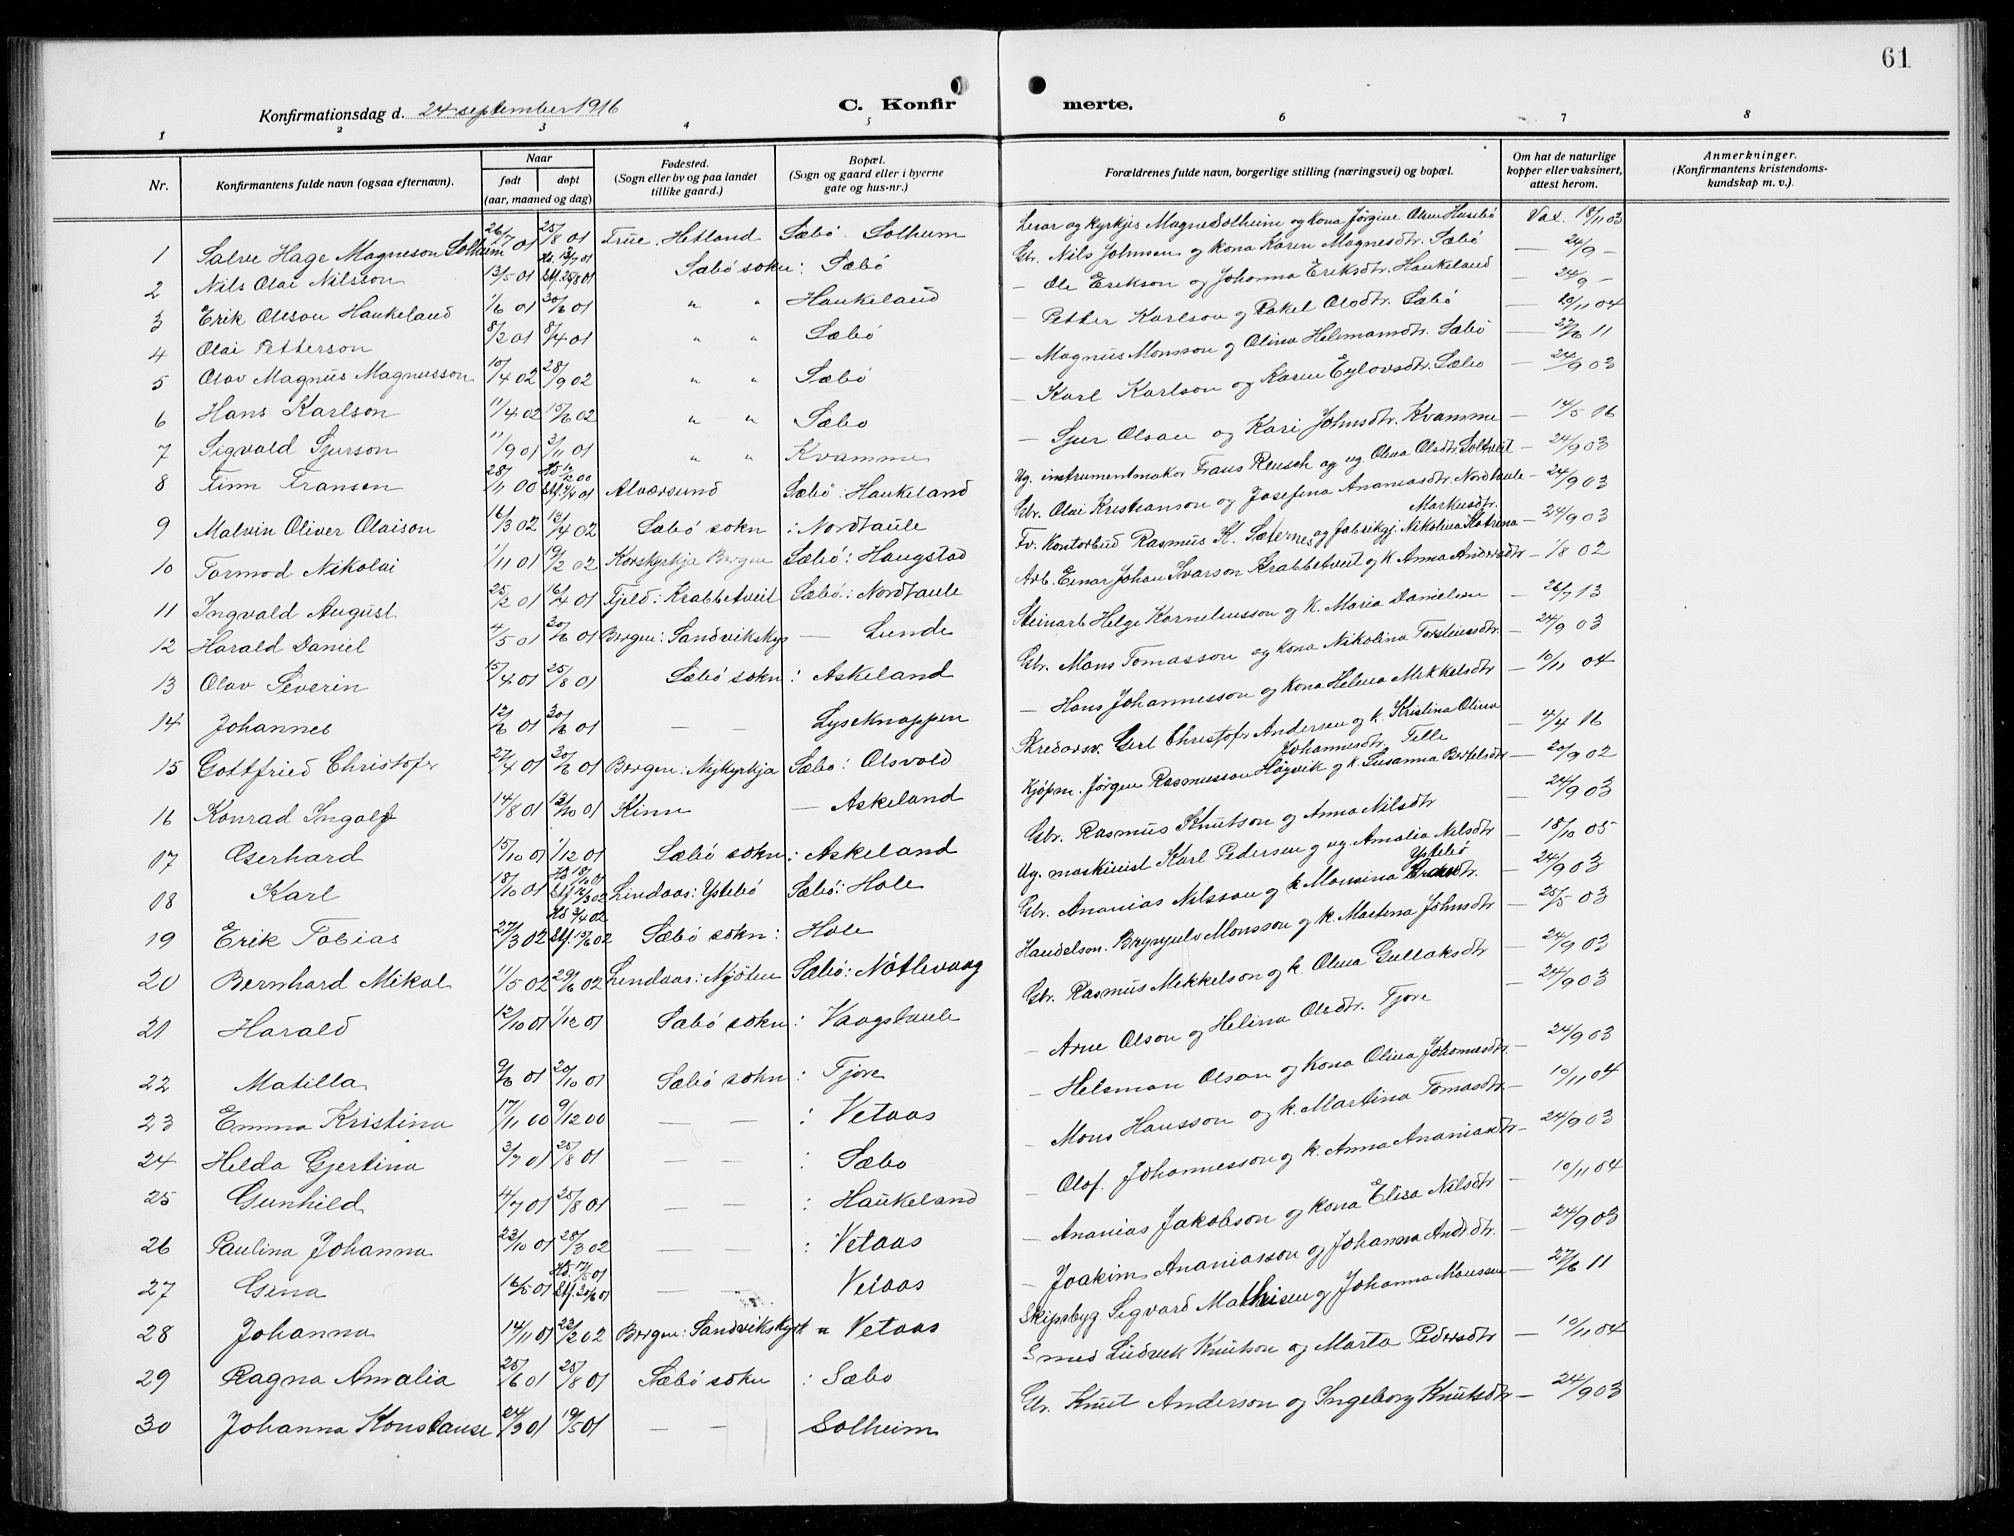 61
Konfirmationsdag d. 24 september 1916
C. Konfir merte.
1 2 3 4 5 6 7 8
Nr. Konfirmantens fulde navn (ogsaa efternavn). Naar født døpt (aar, maaned og dag) Fødested. (Sogn eller by og paa landet tillike gaard.) Bopæl. (Sogn og gaard eller i byerne gate og hus-nr.) Forældrenes fulde navn, borgerlige stilling (næringsvei) og bopæl. Om hat de naturlige kopper eller vaksinert, attest herom. Anmerkninger. (Konfirmantens kristendomskundskap m. v.).
1 Salve Hage Magneson Solheim 26/7 01 25/8 01 Time, Hetland Sæbö: Solheim Lærar og kyrkjes. Magne Solheim og kona Jörgine Olsen Husebö Vax. 18/11 03
2 Nils Olai Nilsson 13/5 01 Hd. 13/7 01 Stf. 25/8 01 Sæbö sokn: Sæbö Gbr. Nils Johnsen og kona Karen Magnesdtr. Sæbö — 24/9 —
3 Erik Olsson Haukeland 1/6 01 30/6 01 " " Haukeland — Ole Erikson og Johanna Eriksdtr. Haukeland — 24/9 —
4 Olai Petterson 8/2 01 8/4 01 " " Sæbö — Petter Karlson og Rakel Olsdtr. Sæbö — 10/11 04
5 Olav Magnus Magnusson 10/4 02 28/9 02 " " Sæbö — Magnus Monsson og Olina Helmansdtr. Sæbö — 27/6 11
6 Hans Karlson 11/4 02 15/6 02 " " Sæbo — Karl Karlson og Karen Eylovsdtr. Sæbo — 24/9 03
7 Sigvald Sjurson 11/9 01 3/11 01 " " Kvamme — Sjur Olsen og Kari Johnsdtr. Kvamme — 14/5 06
8 Finn Fransen 28/11 00 Stf. 14/4 01 Alværsund Sæbö: Haukeland Ug. instrumentmakor Frans Reusch og ug. Olina Olsdtr. Soltveit — 24/9 03
9 Malvin Oliver Olaison 16/3 02 13/4 02 Sæbö sokn : Nordtaule Gbr. Olai Kristianson og Josefina Ananiasdtr. Nordtaule — 24/9 03
10 Tormod Nikolai 1/11 01 19/2 02 Korskyrkja Bergen Sæbö: Haugstad Fv. Kontorbud Rasmus K. Sæternes og fabrikgj. Nikolina Katrina Markusdtr. — 24/9 03
11 Ingvald August 25/2 01 16/4 01 Fjeld: Krabbetveit Sæbö: Nordtaule Arb. Einar Johan Ivarson Krabbetveit og k. Anna Andersdtr — 1/8 02
12 Harald Daniel 4/5 01 30/6 01 Bergen: Sandvikskyr — Lunde Steinarb. Helge Korneliusson og k. Maria Danielsen — 26/7 13
13 Olav Severin 15/4 01 25/8 01 Sæbö sokn : Askeland Gbr. Mons Tomasson og kona Nikolina Torsteinsdtr. — 24/9 03
14 Johannes 12/6 01 30/6 01 — — Lyseknappen — Hans Johannesson og kona Helena Mekkelsdtr — 10/11 04
15 Gottfried Christofer 27/4 01 30/6 01 Bergen: Nykyrkja Sæbö: Olsvold Skredarsv. Gerl Christofer Andersen og k. Kristina Olina Johannesdtr. Telle — 4/4 16
16 Konrad Ingolf 14/8 01 13/10 01 Kinn — Askeland Kjöpm. Jörgen Rasmusson Högvik og k. Susanna Bertelsdtr — 20/9 02
17 Gerhard 15/10 01 1/12 01 Sæbö sokn : Askeland Gbr. Rasmus Knutson og Anna Nilsdtr — 24/9 03
18 Karl 18/10 01 Hd 18/10 01 Stf. 12/3 02 Lindaas: Ystebö Sæbö: Hole Ug. maskinist Karl Pedersen og ug. Amalia Nilsdtr Ystebö — 18/10 05
19 Erik Tobias 27/3 02 Hd 3/4 02 Stf. 15/6 02 Sæbö sokn: Hole Gbr. Ananias Nilsson og k. Monsina — 24/9 03
20 Bernhard Mikal 11/5 02 29/6 02 Lindaas: Njöten Sæbö: Nötlevaag Handelsm. Brynjulv Monsson og k. Martina Johnsdtr — 25/5 03
21 Harald 12/10 01 1/12 01 Sæbö sokn : Vaagstaule Gbr. Rasmus Mekkelson og k. Olina Gullaksdtr — 24/9 03
22 Matilla 9/6 01 20/10 01 Sæbö sokn : Fjore — Arne Olson og Helina Olsdtr. Fjore — 24/9 03
23 Emma Kristina 17/11 00 9/12 00 — — : Vetaas — Helsman Olson og kona Olina Johannesdtr — 24/9 03
24 Helda Gjertina 3/7 01 25/8 01 — — : Sæbo — Mons Hansson og k. Martina Tomasdtr. — 10/11 04
25 Gunhild 4/7 01 25/8 01 — — : Haukeland — Olof. Johannesson og k. Anna Ananiasdtr — 24/9 03
26 Paulina Johanna 23/10 01 28/3 02 — — : Vetaas — Ananias Jakobson og kona Elisa Nilsdtr — 10/11 04
27 Gina 16/5 01 Hd. 17/5 01 Stf. 30/6 01 — — Vetaas — Joakim Ananiasson og Johanna Andr.dtr. — 24/9 03
28 Johanna 14/11 01 23/2 02 Bergen: Sandvikskyrk " Vetaas Skipsbyg. Sigvard Mathisen og Johanna Monsson — 27/6 11
29 Ragna Amalia 25/6 01 25/8 01 Sæbö sokn : Sæbo Smed Ludvik Knutson og Marta Pedersdtr — 10/11 04
30 Johanna Konstanse 24/3 01 19/5 01 — — Solheim Gbr. Knut Anderson og Ingeborg Knutsdtr — 24/9 03